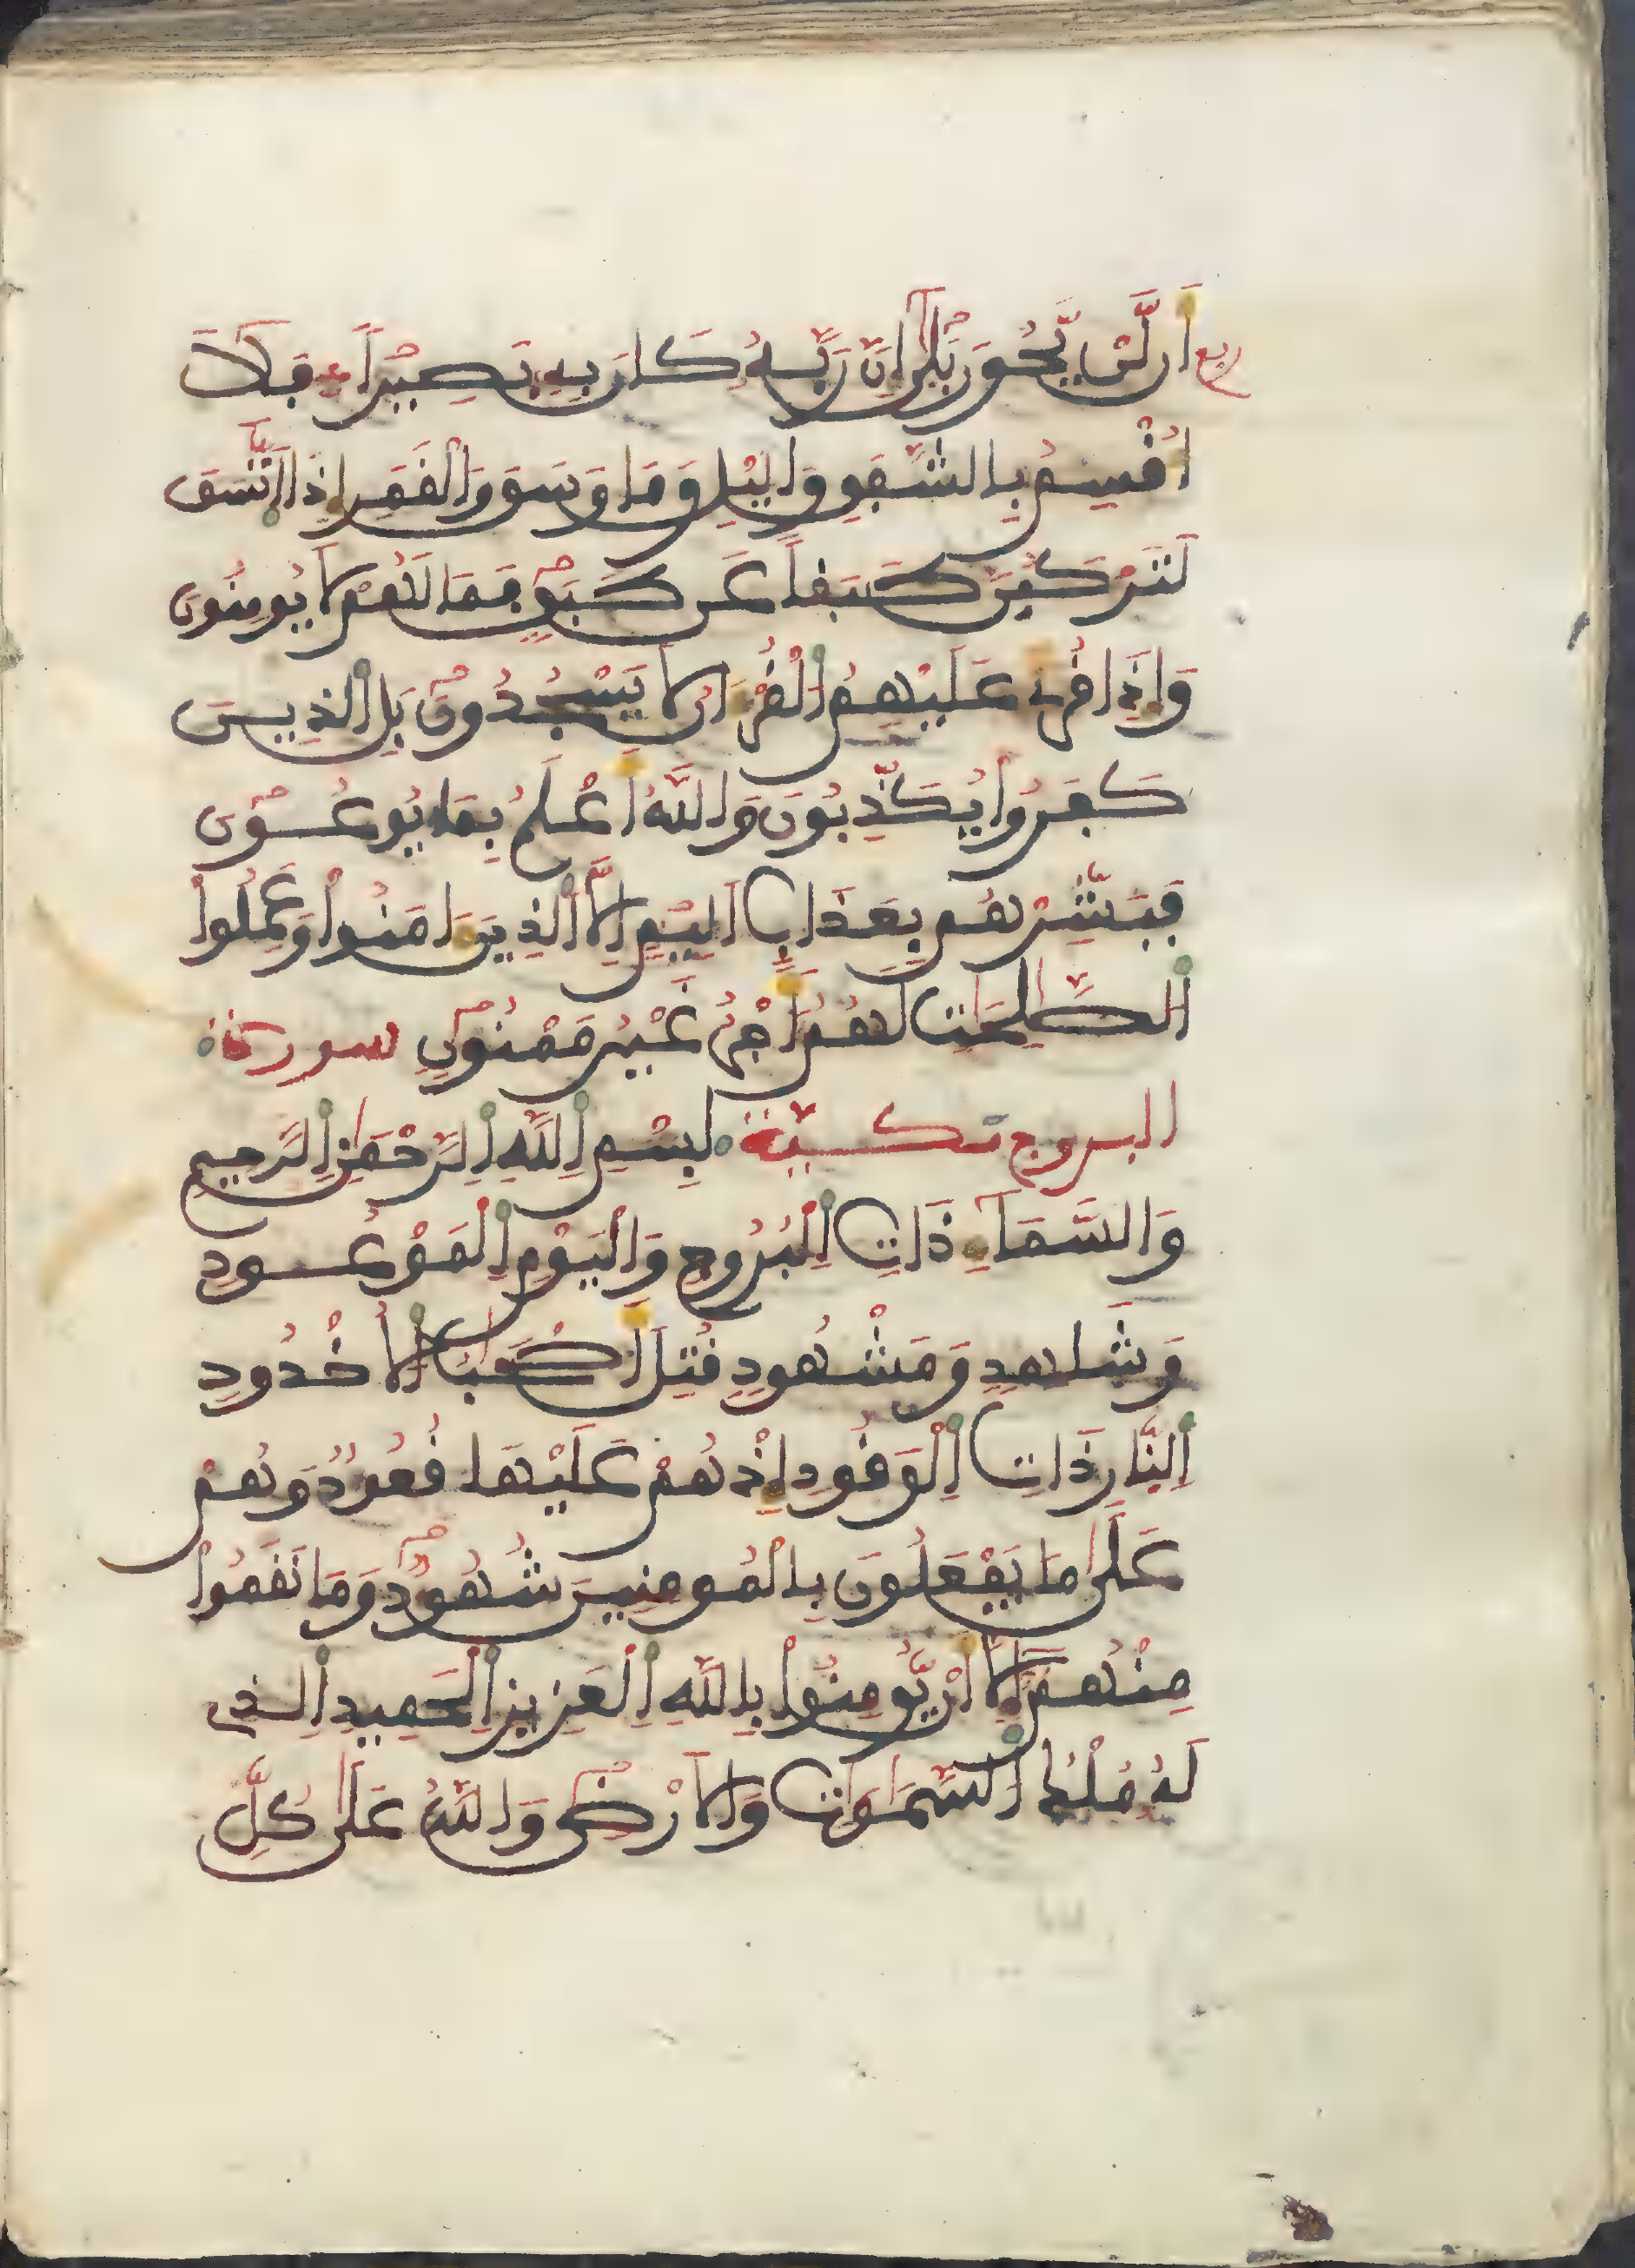 ربع اَن لَّنْ يَّحُورَ بَلٰىٓ إِنَّ رَبَّهُۥ كَانَ بِهِۦ بَصِيراً فَلَآ
أُقْسِمُ بِالشَّفَقِ وَاليْلِ وَمَا وَسَقَ وَالْقَمَرِ إِذَا اَتَّسَقَ
لَتَرْكَبُنَّ طَبَقاً عَن طَبَقٍ فَمَا لَهُمْ لَا يُومِنُونَ
وَإِذَا قُرِئَ عَلَيْهِمُ الْقُرْءَانُ لَا يَسْجُدُونَ بَلِ الذِينَ
كَفَرُواْ يُكَذِّبُونَ وَاللَّهُ أَعْلَمُ بِمَا يُوعُونَ
فَبَشِّرْهُم بِعَذَابٍ اَلِيمٍ اِلَّا الذِينَ ءَامَنُواْ وَعَمِلُواْ
الصَّٰلِحَٰتِ لَهُمُۥٓ أَجْرٌ غَيْرُ مَمْنُونٍ سورة
البروج مكية بِسْمِ اِللَّهِ اِلرَّحْمَٰنِ اِلرَّحِيمِ
وَالسَّمَآءِ ذَاتِ اِلْبُرُوجِ وَالْيَوْمِ اِلْمَوْعُودِ
وَشَاهِدٍ وَمَشْهُودٍ قُتِلَ أَصْحَٰبُ الْأُخْدُودِ
اِلنَّارِ ذَاتِ اِلْوَقُودِ إِذْ هُمْ عَلَيْهَا قُعُودٌ وَهُمْ
عَلَىٰ مَا يَفْعَلُونَ بِالْمُومِنِينَ شُهُودٌ وَمَا نَقَمُواْ
مِنْهُمُۥٓ إِلَّآ أَنْ يُّومِنُواْ بِاللَّهِ اِلْعَزِيزِ اِلْحَمِيدِ اِلذِى
لَهُۥ مُلْكُ السَّمَٰوَٰتِ وَالْأَرْضِ وَاللَّهُ عَلَىٰ كُلِّ